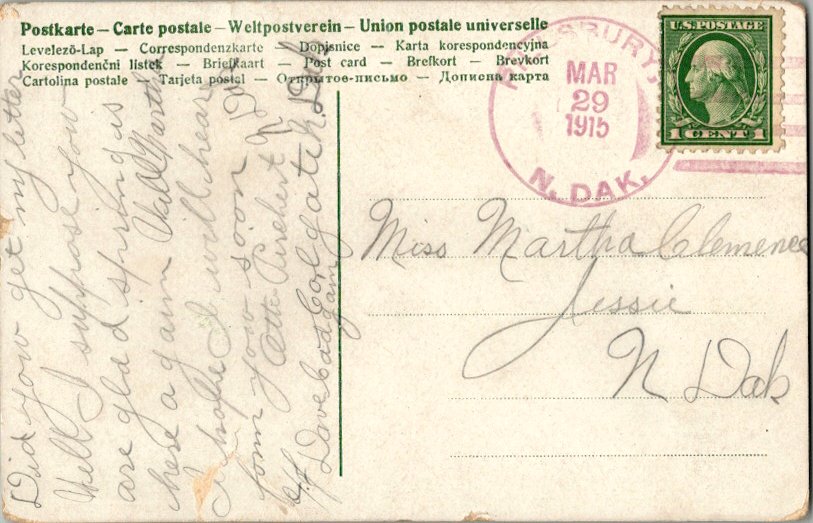 Postkarte – Carte postale – Weltpostverein – Union postale universelle
Levelező-Lap — Correspondenzkarte — Dopisnice — Karta korespondencyjna
Korespondenční lístek — Briefkaart — Post card — Brefkort — Brevkort
Cartolina postale — Tarjeta postal — Открытое-письмо — Дописна карта
PILLSBURY,
MAR
29
1915
N. DAK.
U.S. POSTAGE
1 CENT 1
Miss Martha Clemence
Jessie
N Dak
Did you get my letter
Well I suppose you
are glad spring is
here again Well Martha
I hope I will hear
form you soon
Otto